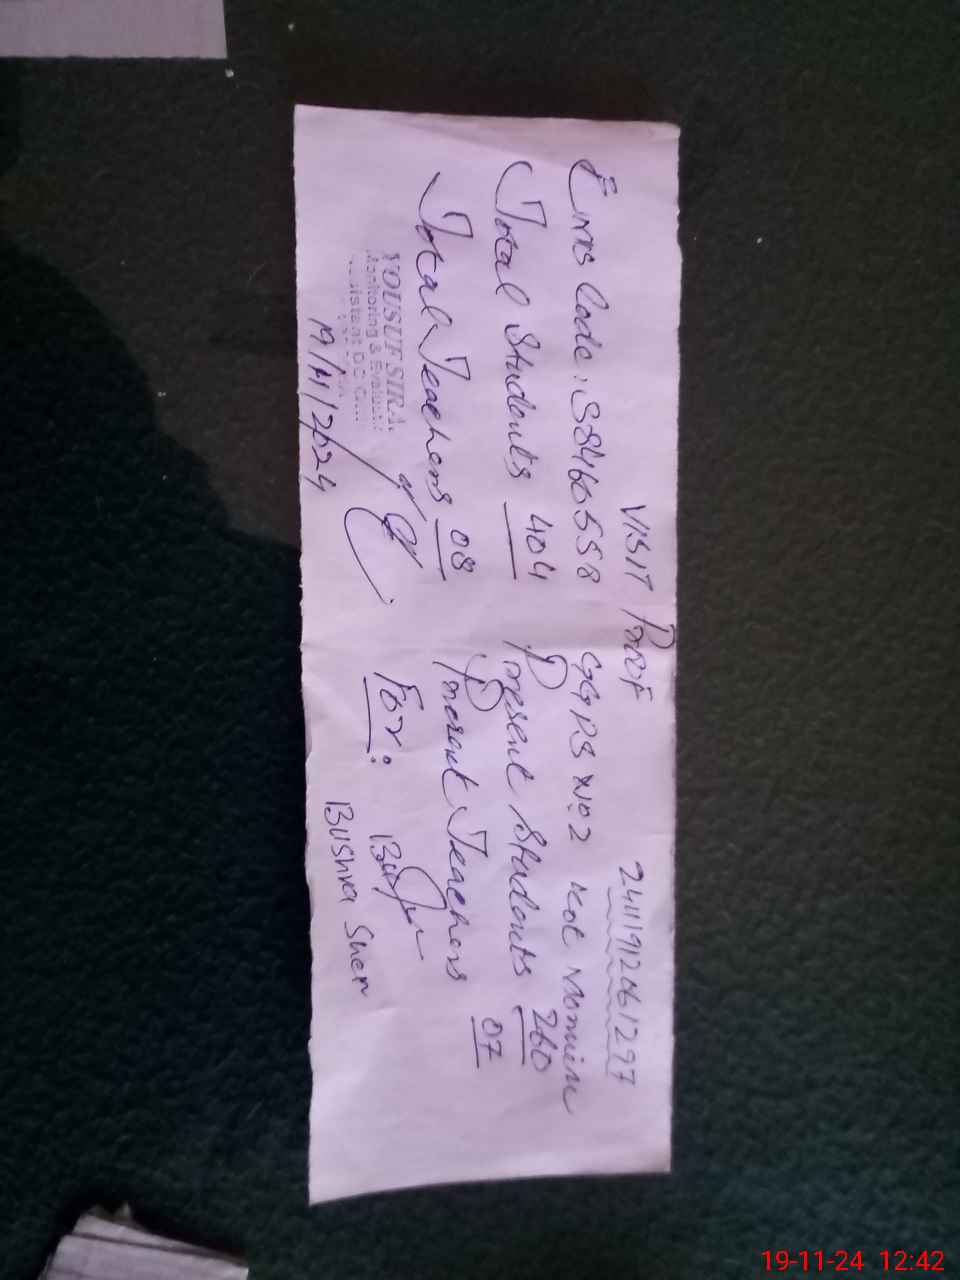 VISIT Proof 24111912061297
Emis Code: 38460558 GGPS No.2 Kot Momim
Total Students 404 Present Students 260
Total Teachers 08 Present Teachers 07
YOUSUF SIRA
Monitoring & Evaluati
istant DC
19/11/2024
For:
Bushra Sher
19-11-24 12:42